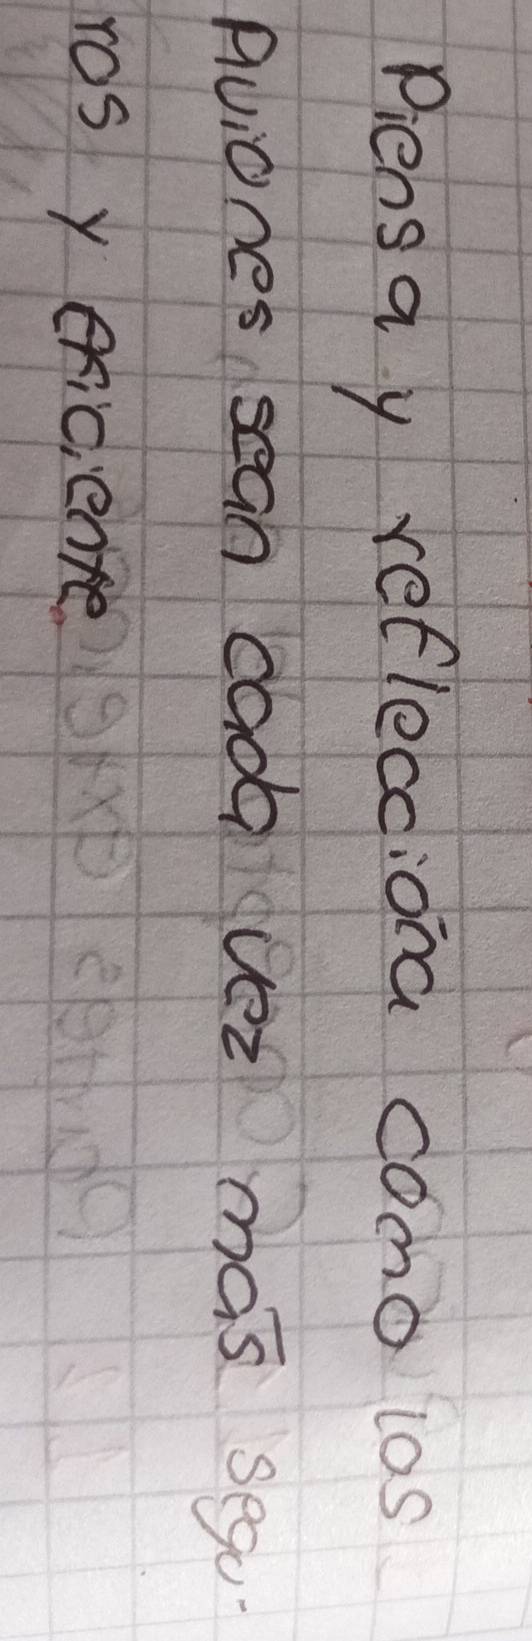 Piensa y refleccióna como los
Aviones sean cada vez más segu-
ros y eficiente.